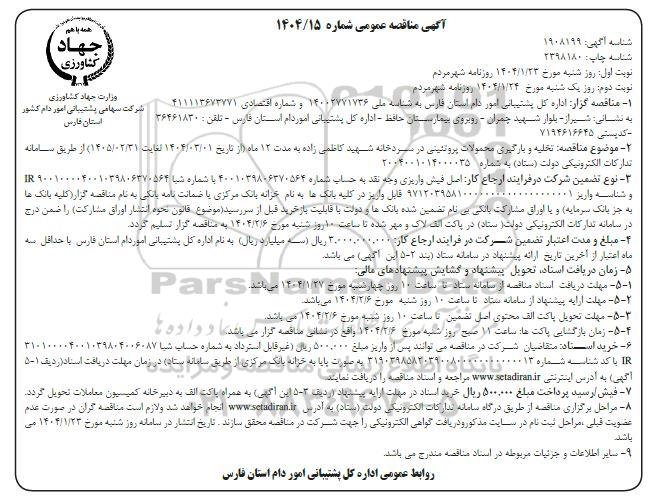 آگهی مناقصه عمومی شماره ۱۴۰۴/۱۵
همه با هم
جهاد
کشاورزی
وزارت جهاد کشاورزی
شرکت سهامی پشتیبانی امور دام کشور
استان فارس
شناسه آگهی: ۱۹۰۸۱۹۹
شناسه چاپ: ۲۳۹۸۱۸۰
نوبت اول: روز شنبه مورخ ۱۴۰۴/۱/۲۳ روزنامه شهرمردم
نوبت دوم: روز یک شنبه مورخ ۱۴۰۴/۱/۲۴ روزنامه شهرمردم
۱- مناقصه گزار: اداره کل پشتیبانی امور دام استان فارس به شناسه ملی ۱۴۰۰۲۷۷۱۷۳۶ و شماره اقتصادی ۴۱۱۱۱۳۶۷۳۷۷۱
به نشانی: شیراز- بلوار شهید چمران - روبروی بیمارستان حافظ - اداره کل پشتیبانی اموردام استان فارس - تلفن : ۳۶۴۶۱۸۳۰
-کدپستی ۷۱۹۴۶۱۶۶۴۵
۲- موضوع مناقصه: تخلیه و بارگیری محمولات پروتئینی در سردخانه شهید کاظمی زاده به مدت ۱۲ ماه (از تاریخ ۱۴۰۴/۰۳/۰۱ لغایت ۱۴۰۵/۰۲/۳۱) از طریق سامانه
تدارکات الکترونیکی دولت (ستاد) به شماره ۲۰۰۴۰۰۱۰۱۴۰۰۰۰۳۵
۳- نوع تضمین شرکت درفرایند ارجاع کار: اصل فیش واریزی وجه نقد به حساب شماره ۴۰۰۱۰۳۹۸۰۶۳۷۰۵۶۴ با شماره شبا IR ۹۰۰۱۰۰۰۰۴۰۰۱۰۳۹۸۰۶۳۷۰۵۶۴
و شناسه واریز ۹۷۱۲۰۳۹۵۸۱۰۰۰۰۰۰۰۰۰۰۰۰۰۰۰۰۰۰۰۰۱ قابل واریز در کلیه بانک ها به نام خزانه بانک مرکزی یا ضمانت نامه بانکی به نام مناقصه گزار(کلیه بانک ها
به جز بانک سرمایه) و یا اوراق مشارکت بانکی بی نام تضمین شده بانک ها و دولت با قابلیت بازخرید قبل از سررسید(موضوع قانون نحوه انتشار اوراق مشارکت) را ضمن درج
در سامانه تدارکات الکترونیکی دولت( ستاد) در پاکت الف لاک و مهر شده تا ساعت ۱۰روز شنبه مورخ ۱۴۰۴/۲/۶ به مناقصه گزار تسلیم گردد.
۴- مبلغ و مدت اعتبار تضمین شرکت در فرایند ارجاع کار: ۳.۰۰۰.۰۰۰.۰۰۰ ریال (سه میلیارد ریال) به نام اداره کل پشتیبانی اموردام استان فارس با حداقل سه
ماه اعتبار از آخرین تاریخ ارائه پیشنهاد در سامانه ستاد (بند ۲-۵ این آگهی) می باشد.
۵- زمان دریافت اسناد، تحویل پیشنهاد و گشایش پیشنهادهای مالی:
۵-۱- مهلت دریافت اسناد مناقصه از سامانه ستاد تا ساعت ۱۰ روز چهارشنبه مورخ ۱۴۰۴/۱/۲۷ می‌باشد.
۵-۲- مهلت ارایه پیشنهاد از سامانه ستاد تا ساعت ۱۰ روز شنبه مورخ ۱۴۰۴/۲/۶ می باشد.
۵-۳- مهلت تحویل پاکت الف محتوی اصل تضمین تا ساعت ۱۰ روز شنبه مورخ ۱۴۰۴/۲/۶ می باشد.
۵-۴- زمان بازگشایی پاکت ها: ساعت ۱۱ صبح روز شنبه مورخ ۱۴۰۴/۲/۶ واقع در نشانی مناقصه گزار می باشد.
۶- خرید اسناد: متقاضیان شرکت در مناقصه می توانند پس از واریز مبلغ ۵۰۰.۰۰۰ ریال (غیرقابل استرداد به شماره حساب شبا ۳۱۰۱۰۰۰۰۴۰۰۱۰۳۹۸۰۴۰۰۶۰۸۷
IR با کد شناسه شماره ۳۱۹۰۳۹۸۵۸۲۰۳۹۰۰۸۰۰۰۰۰۰۰۰۰۰۰۰۰۱۳ به صورت پایا به خزانه بانک مرکزی از طریق سامانه ستاد) در زمان مهلت دریافت اسناد(ردیف ۱-۵
آگهی) به آدرس اینترنتی www.setadiran.ir مراجعه و اسناد مناقصه را دریافت نمایند.
۷- فیش/رسید پرداخت مبلغ ۵۰۰.۰۰۰ ریال خرید اسناد در مهلت ارایه پیشنهاد (ردیف ۳-۵ این آگهی) به همراه پاکت الف به دبیرخانه کمیسیون معاملات تحویل گردد.
۸- مراحل برگزاری مناقصه از طریق درگاه سامانه تدارکات الکترونیکی دولت (ستاد) به آدرس www.setadiran.ir انجام خواهد شد ولازم است مناقصه گران در صورت عدم
عضویت قبلی ،مراحل ثبت نام در سایت مذکورودریافت گواهی الکترونیکی را جهت شرکت در مناقصه محقق سازند . تاریخ انتشار در سامانه روز شنبه مورخ ۱۴۰۴/۱/۲۳ می
باشد.
۹- سایر اطلاعات و جزئیات مربوطه در اسناد مناقصه مندرج می باشد.
روابط عمومی اداره کل پشتیبانی امور دام استان فارس